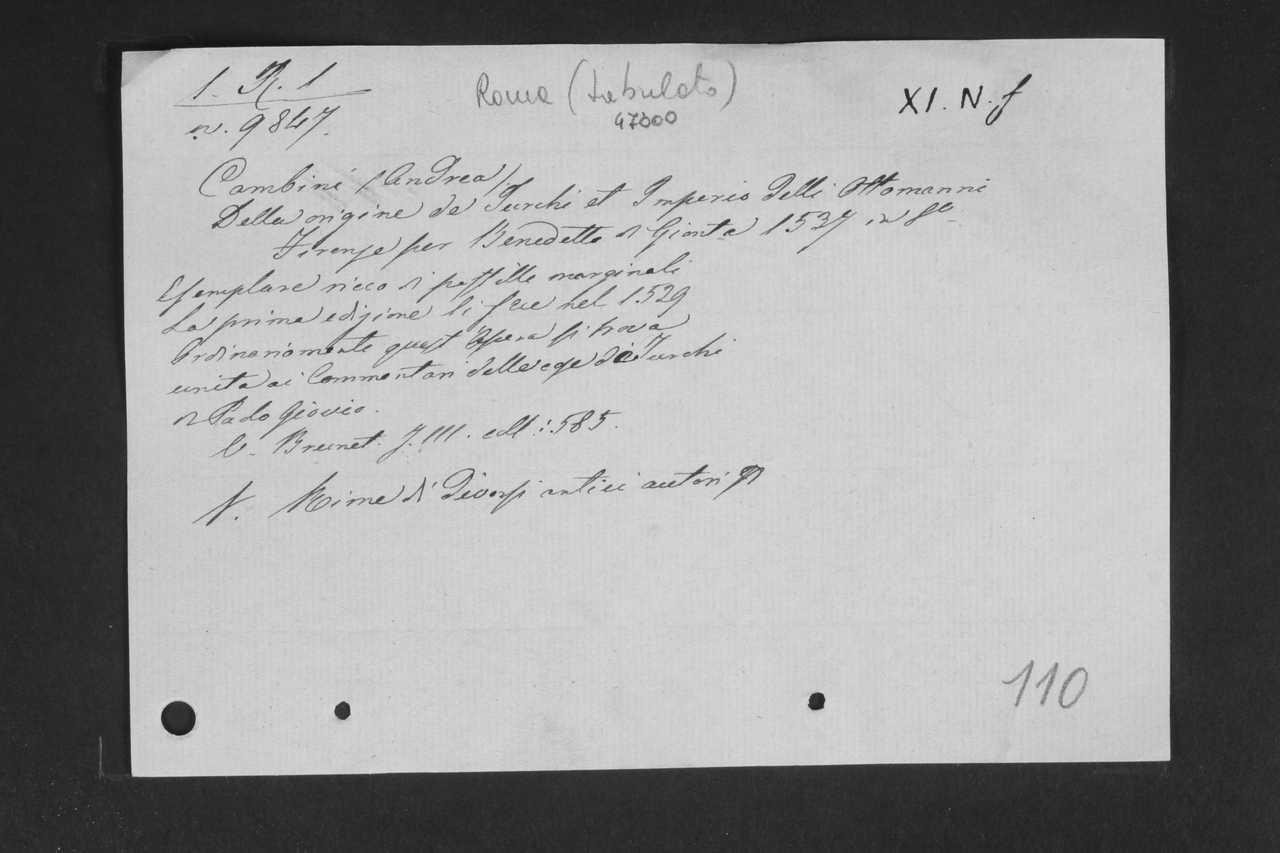 1. R. 1
n. 9847.
Roma (tabulato)
47300
XI. N. f
Cambini (Andrea)
Della origine de Turchi et Imperio delli Ottomanni
Firenze per Benedetto di Gionta 1537 in 8o
Esemplare ricco di postille marginali
La prima edizione si fece nel 1529
Ordinariamente quest'opera si trova
unita ai Commentari delle cose de Turchi
di Paolo Giovio.
V. Brunet. T. III. coll: 585.
V. Rime di diversi antici autori
110